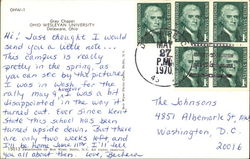 OHW-1
Gray Chapel
OHIO WESLEYAN UNIVERSITY
Delaware, Ohio
Hi! Just thought I would
send you a little note...
This campus is really
pretty in the spring, as
you can see by the picture.
I was in Wash. for the
rally may 9, I was so
disappointed in the way it
turned out. Ever since Kent
State this school has been
turned upside down. But there
are only two weeks left and
I'll be home June
you all about then. Love, Barbara
MAY
27
PM
1970
The Johnsons
4851 Albemarle St, NW
Washington, D.C.
20016